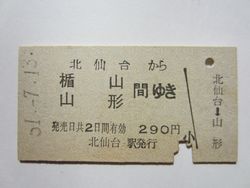 51.-7.13
北仙台から
楯山
山形
間ゆき
発売日共2日間有効 290円
北仙台 駅発行
小
北仙台➡山形